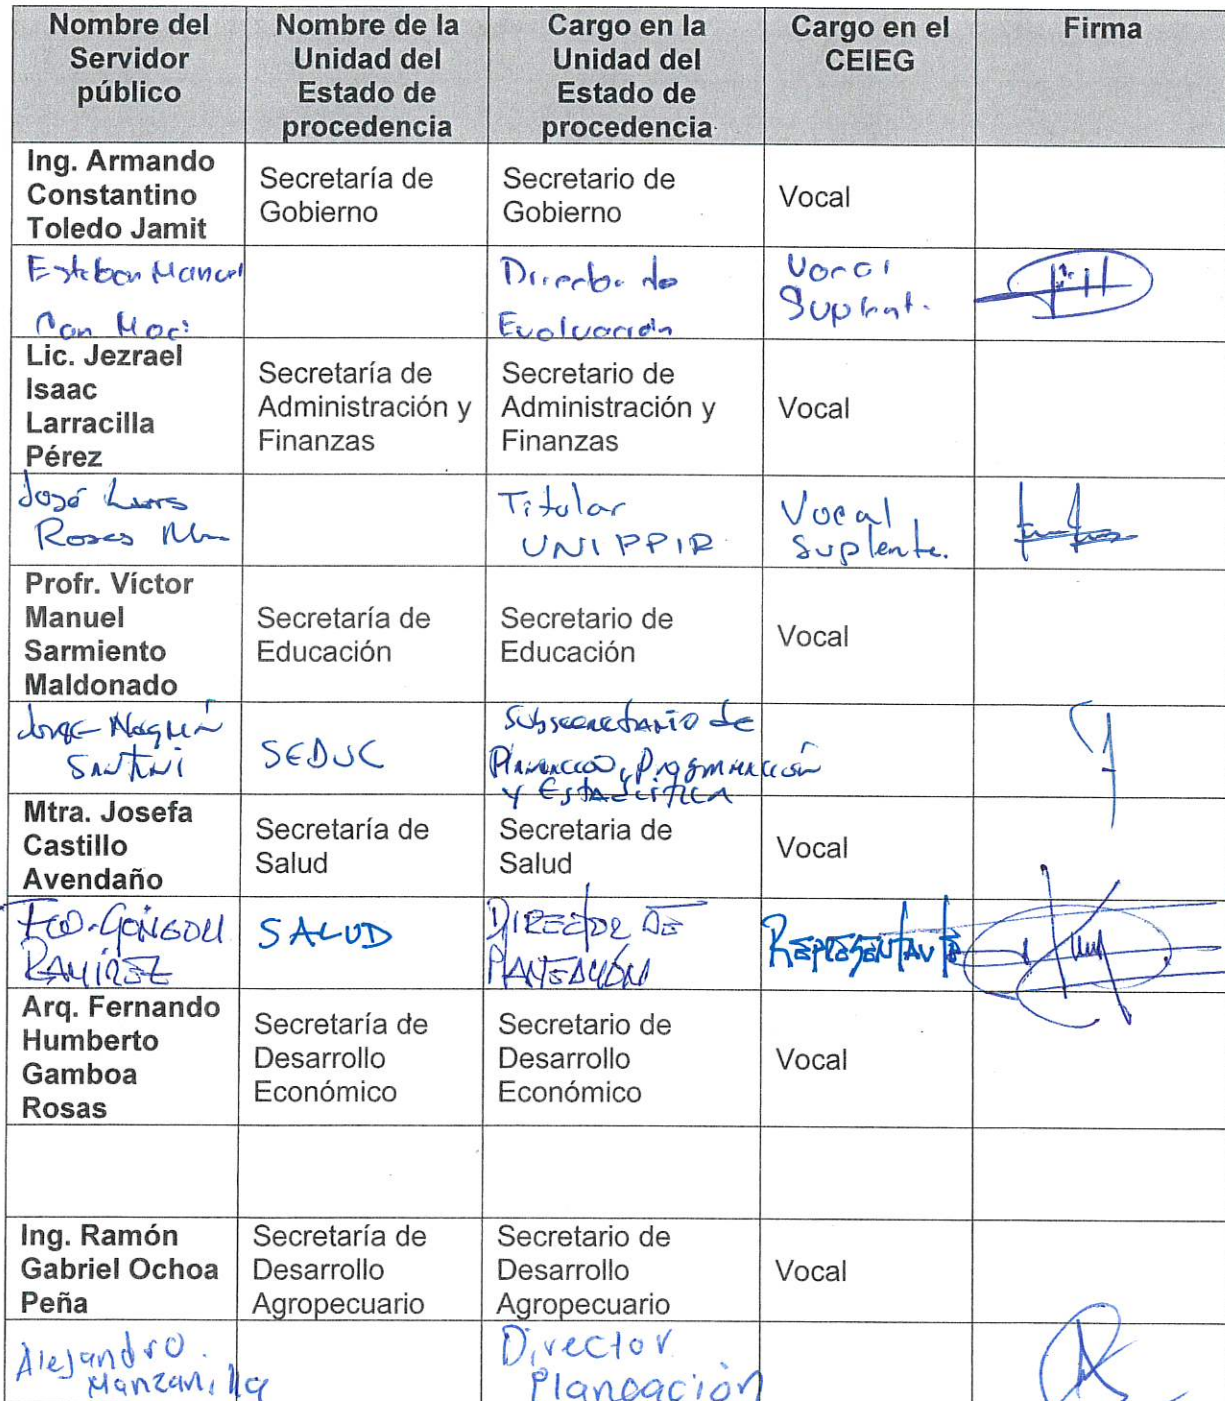 Nombre del Servidor público
Nombre de la Unidad del Estado de procedencia
Cargo en la Unidad del Estado de procedencia
Cargo en el CEIEG
Firma
Ing. Armando Constantino Toledo Jamit
Secretaría de Gobierno
Secretario de Gobierno
Vocal
Esteban Manuel
Can
Director de
Evaluación
Vocal
Suplent.
Lic. Jezrael Isaac Larracilla Pérez
Secretaría de Administración y Finanzas
Secretario de Administración y Finanzas
Vocal
José Luis
Rosas
Titular
UNIPPIR
Vocal
Suplente.
Profr. Víctor Manuel Sarmiento Maldonado
Secretaría de Educación
Secretario de Educación
Vocal
Jorge
Santini
SEDUC
Subsecretario de
Planeación, Programación
y Estadística
Mtra. Josefa Castillo Avendaño
Secretaría de Salud
Secretaria de Salud
Vocal
Fco. Góngora
RAMÍREZ
SALUD
DIRECTOR DE
PLANEACIÓN
REPRESENTANTE
Arq. Fernando Humberto Gamboa Rosas
Secretaría de Desarrollo Económico
Secretario de Desarrollo Económico
Vocal
Ing. Ramón Gabriel Ochoa Peña
Secretaría de Desarrollo Agropecuario
Secretario de Desarrollo Agropecuario
Vocal
Alejandro
Manzanilla
Director
Planeación